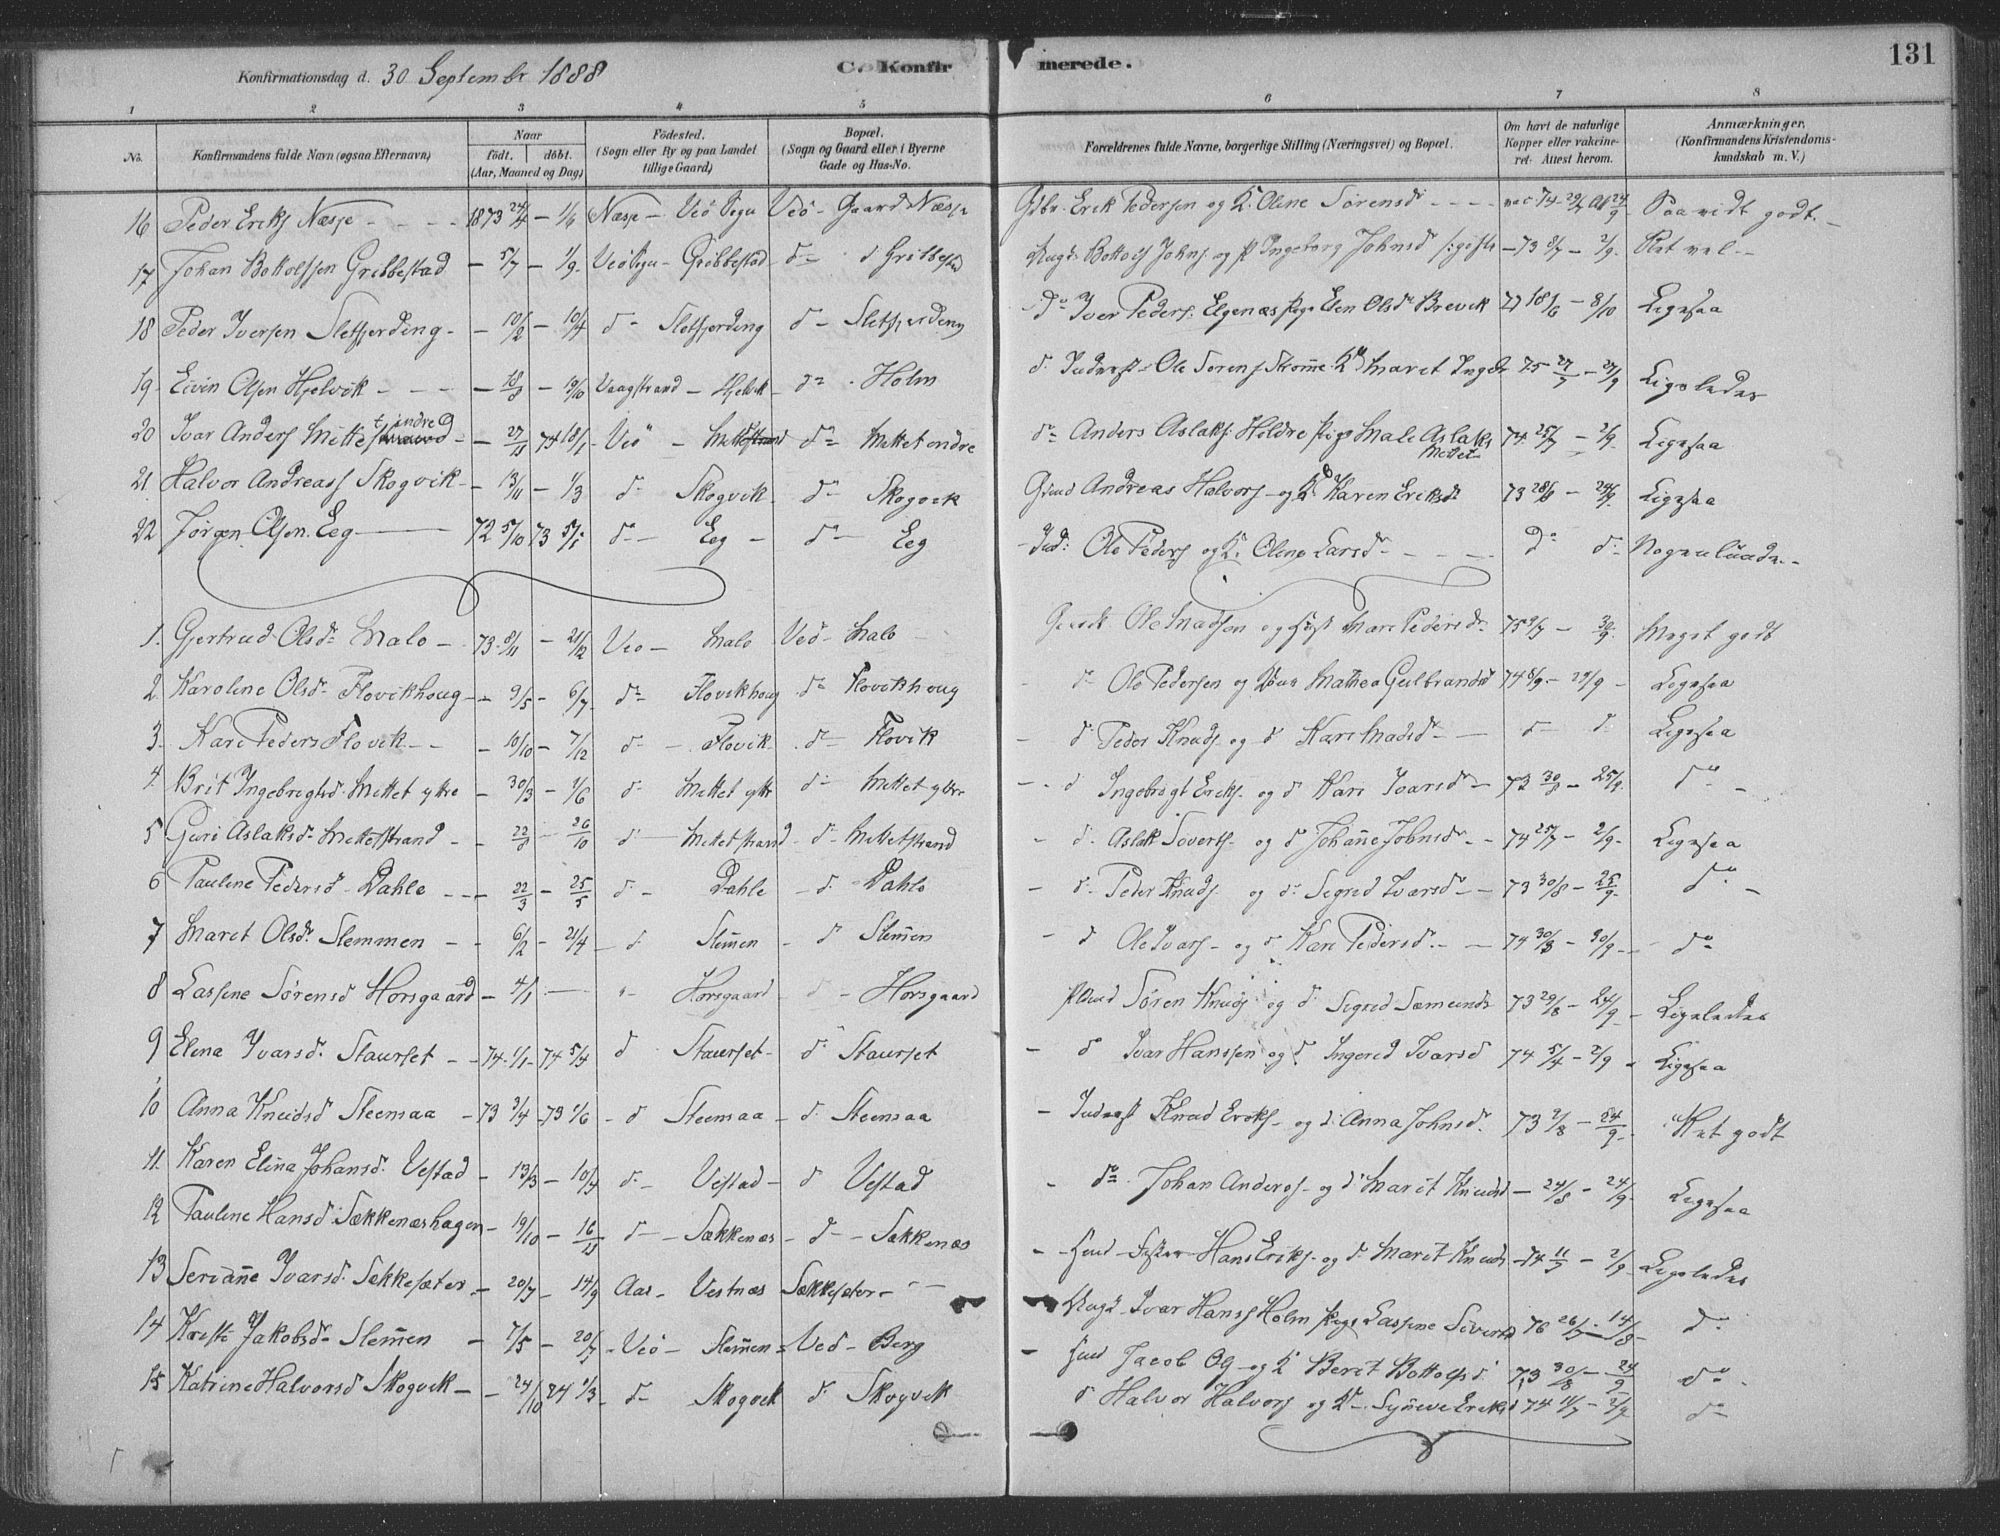 131
Konfirmationsdag d. 30 September 1888 C. Konfirmerede.
1 2 3 4 5 6 7 8
No. Konfirmandens fulde Navn (ogsaa Efternavn) Naar födt. döbt. (Aar, Maaned og Dag) Födested. (Sogn eller By og paa Landet tillige Gaard) Bopæl. (Sogn og Gaard eller i Byerne Gade og Hus-No. Forældrenes fulde Navne, borgerlige Stilling (Næringsvei) og Bopæl. Om havt de naturlige Kopper eller vakcineret. Attest herom. Anmærkninger. (Konfirmandens Kristendomskundskab m. V.)
16 Peder Eriks Næsje - 1873 24/4 - 1/6 Næsje - Veö Sogn Veö - Gaard Næsje Gdbr. Erik Pedersen og K. Oline Sörensd - vac 74 Saavidt godt -
17 Johan Bottolfsen Gribbestad - 5/7 - 1/9 Veö Sogn - Gribbestad d - d Gribbestad Bottolf Johns og Ingeborg Johnsd - 73 8/7 - 2/9 Ret vel -
18 Peder Iversen Sletfjerding - - 10/2 - 10/4 d - Sletfjerding d - Sletfjerding do Iver Peders Elgenæs Pige Elen Olsd Brevik 77 18/6 - 8/10 Ligesaa
19 Eivin Olsen Hjelvik - 18/8 - 19/10 Vaagstrand - Hjelvik d - Holm d. Inderst - Ole Sörens Maret 75 27/7 - 27/9 Ligeledes
20 Ivar Anders Mittet indre - 27/11 74 18/1 Veö - d - Mittet indre do Anders Aslaks Hildre Pige Mali Aslaks Mittet 74 25/7 - 2/9 Ligesaa
21 Halvor Andreass Skogvik - 13/11 - 1/3 d - Skogvik d - Skogvik Gmd Andreas Halvors og K. Karen Eriksd 73 28/8 - 24/9 Ligesaa
22 Jörgen Olsen Eeg - 72 5/10 73 5/1 d - Eeg - d - Eeg Ole Peders og K. Oline Larsd - d d Nogenlunde -
1. Gjertrud Olsd Malo - 73 8/11 - 21/12 Veö - Malo Veö - Malo Ole Madsen og Hust Mari Pedersd 75 9/7 - 30/9 Meget godt
2. Karoline Olsd Flovikhoug - 9/5 - 6/7 d - Flovikhoug d - Flovikhoug d Ole Pedersen og Mathea Gulbrandsd 74 8/9 - 29/9 - Ligesaa
3. Kari Peders Flovik - 10/10 - 7/12 d - Flovik d - Flovik d Peder Knuds og d Kari Madsd - d d Ligesaa
4. Brit Ingebrigtsd Mittet ytre - 30/3 - 1/6 d - Mittet ytr d - Mittet ytre d Ingebrigt Eriks og d Kari Ivarsd - 73 30/8 - 25/9 do -
5 Guri Aslaksd Mittetstrand - 22/8 26/10 d - Mittetstrand - d - Mittetstrand d. Aslak Siverts og d Johanne Johnsd - 74 25/7 - 2/9 - Ligesaa
6 Pauline Pedersd Dahle - 22/3 - 25/5 d - Dahle - d. Dahle d. Peder Knuds og d. Sigrid Ivarsd - 73 30/8 - 25/9 do -
7 Maret Olsd Slemmen - 6/2 - 21/4 d Slemmen - d Slemmen d Ole Ivars - og d. Kari Pedersd - 74 30/8 - 30/9 - do
8 Lassine Sörensd Horsgaard - 4/1 - Horsgaard - d - Horsgaard Sören Knuds og d. Sigrid Sæmunds 73 29/8 - 24/9 - Ligeledes
9 Elena Ivarsd Staurset - 74 1/1 74 5/4 d Staurset - d Staurset d Ivar Hanssen og d Ingerid Ivarsd 74 5/4 - 2/9 Ligesaa
10 Anna Knudsd Steensaa - 73 3/4 73 1/6 - d Steensaa - d. Steensaa - Inderst Knud Eriks - og d. Anna Johnsd 73 2/8 - 24/9 Ret godt
11. Karen Elina Johansd. Vestad - 13/3 - 10/4 d - Vestad - d Vestad do Johan Anders - og d Marit Knudsd - 24/8 - 24/9 Ligesaa
12 Pauline Hansd Sækkenæshagen - 19/10 - 16/11 d - Sækkenæs - d - Sækkenæs Hans Eriks og d. Maret Knuds - 74 11/7 - 2/9 Ligeledes
13 Serianne Ivarsd. Sækkesæter - 20/7 - 14/9 Aas - Vestnæs Sækkesæter - Ivar Hanss Holm Pige Lassine Siverts 76 26/7 - 14/8 - d
14 Kristi Jakobsd Slemmen - 7/5 - 20/7 - Veö - Slemmen - Veö - Berg Jacob Ol - og K Beret Bottolfsd 73 30/8 - 24/9 do
15 Katrine Halvorsd Skogvik - 24/10 74 1/3 d - Skogvik d Skogvik d Halvor Halvors og K - Synneve Eriksd 74 11/7 - 2/9 do